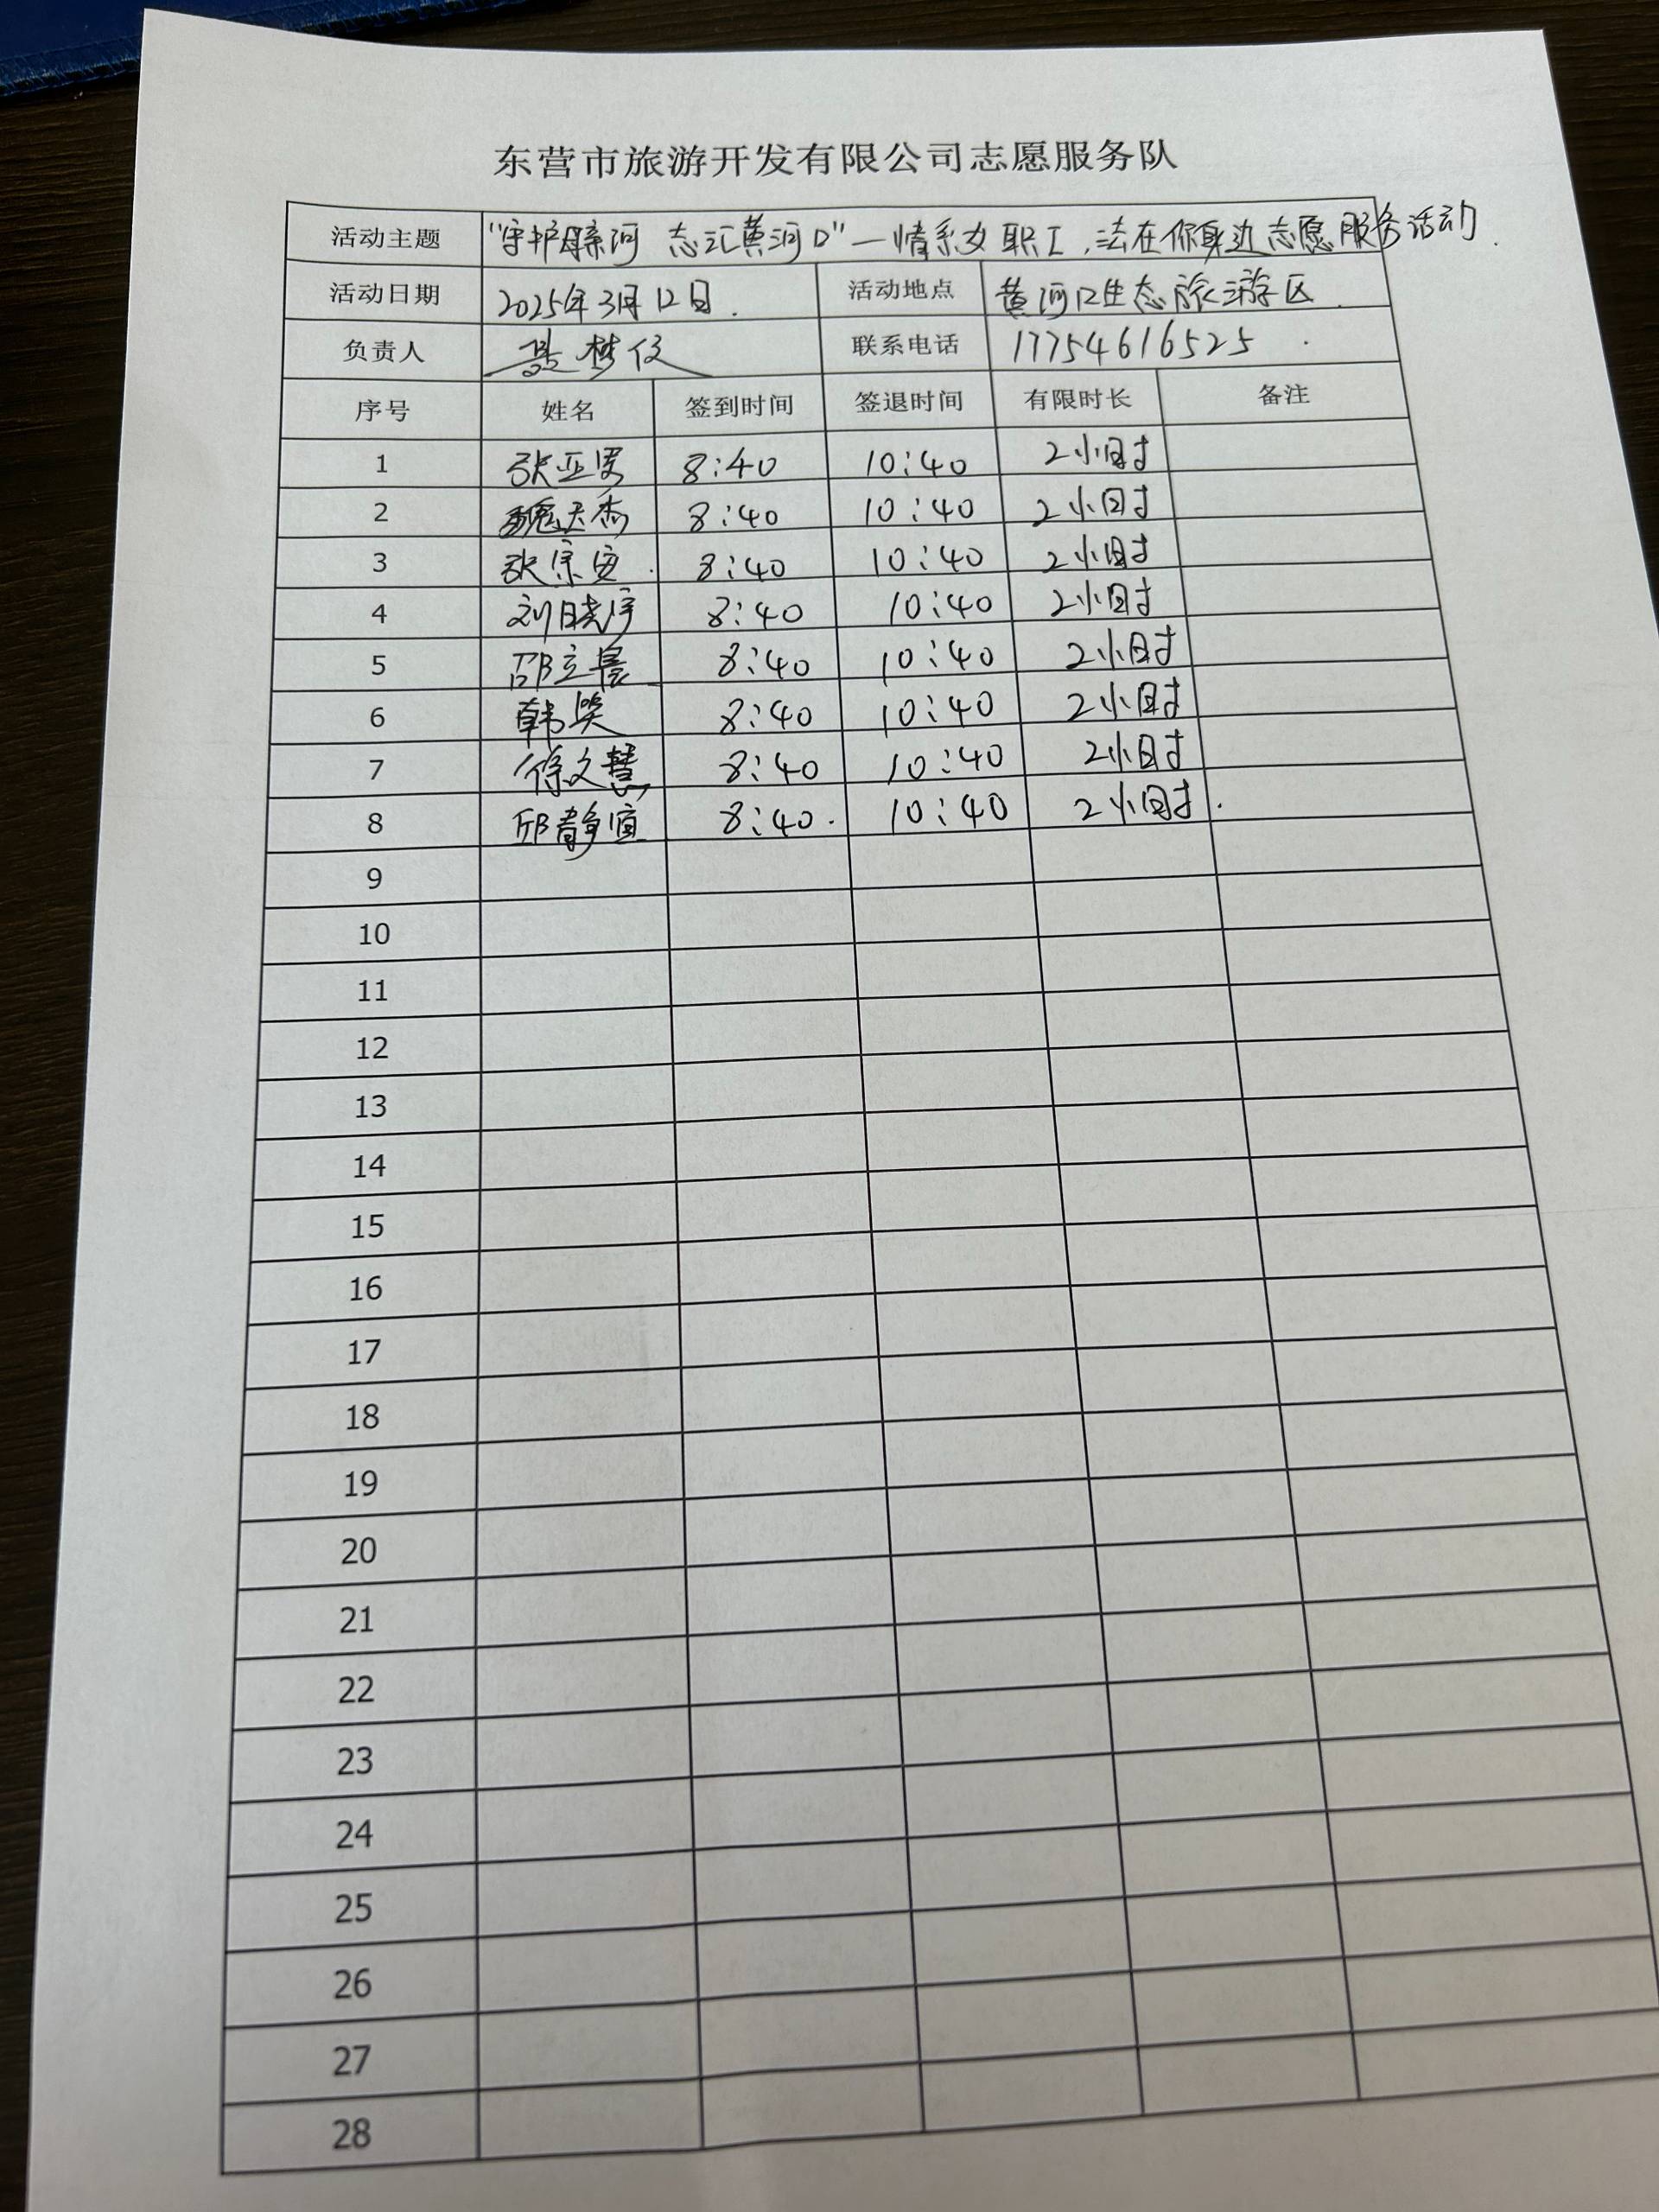 东营市旅游开发有限公司志愿服务队
活动主题 "守护母亲河 志汇黄河口"—情系女职工,法在你身边志愿服务活动.
活动日期 2025年3月12日. 活动地点 黄河口生态旅游区.
负责人 联系电话 17754616525.
序号 姓名 签到时间 签退时间 有限时长 备注
1 8:40 10:40 2小时
2 8:40 10:40 2小时
3 张宗安. 8:40 10:40 2小时
4 刘晓宇 8:40 10:40 2小时
5 邵立晨 8:40 10:40 2小时
6 韩笑 8:40 10:40 2小时
7 徐文慧 8:40 10:40 2小时
8 邱静宜 8:40. 10:40 2小时.
9
10
11
12
13
14
15
16
17
18
19
20
21
22
23
24
25
26
27
28